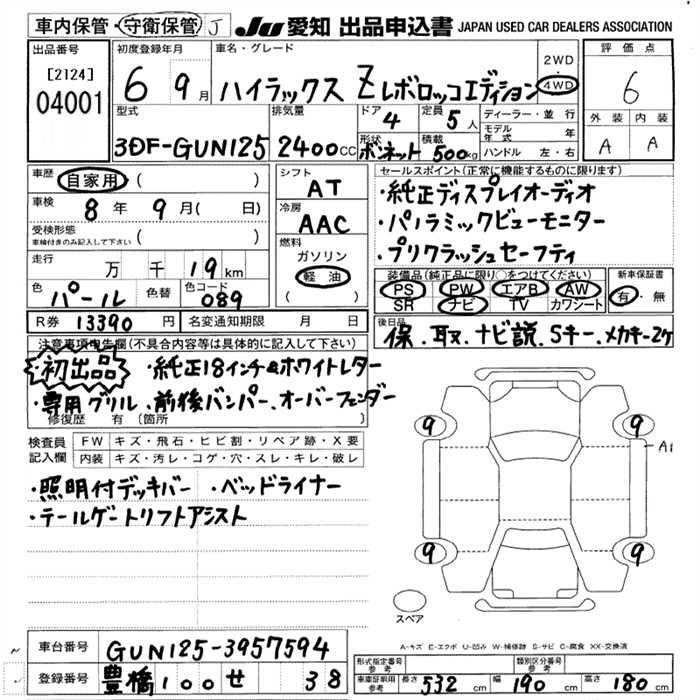 車内保管・守衛保管 J JU 愛知 出品申込書 JAPAN USED CAR DEALERS ASSOCIATION
出品番号 初度登録年月 車名・グレード 評価点
[2124] 6 9月 ハイラックス Zレボロッコエディション 2WD 4WD 6
04001
型式 排気量 ドア 4 定員 5人 ディーラー・並行 外装 内装
モデル年式 年
3DF-GUN125 2400cc 形状 ボンネット 積載 500kg ハンドル 左・右 A A
車歴 自家用 ( ) シフト AT セールスポイント(正常に機能するものに限ります)
車検 8年 9月( 日) 冷房 AAC ・純正ディスプレイオーディオ
受検形態 車検付きのみ記入して下さい ( ) ・パノラミックビューモニター
燃料 ガソリン ・プリクラッシュセーフティ
走行 万 千 19km 軽油 装備品(純正品に限り○をつけてください) 新車保証書
色 パール 色替 色コード 089 ( ) PS PW エアB AW 有・無
SR ナビ TV カワシート
R券 13390円 名変通知期限 月 日 後日品
保、取、ナビ説、Sキー、メカキー2ケ
注意事項申告欄(不具合内容等は具体的に記入して下さい)
・初出品 ・純正18インチ&ホワイトレター
・専用グリル、前後バンパー、オーバーフェンダー
修復歴 有 (箇所 )
検査員記入欄 FW キズ・飛石・ヒビ割・リペア跡・X要
内装 キズ・汚レ・コゲ・穴・スレ・キレ・破レ
・照明付デッキバー ・ベッドライナー
・テールゲートリフトアシスト
9 9
A1
9 9
スペア
A-キズ E-エクボ U-凹み W-補修跡 S-サビ C-腐食 XX-交換済
車台番号 GUN125-3957594
形式指定番号 参考 類別区分番号 参考
登録番号 豊橋 100 せ 38 車庫証明用 参考 長さ 532cm 幅 190cm 高さ 180cm